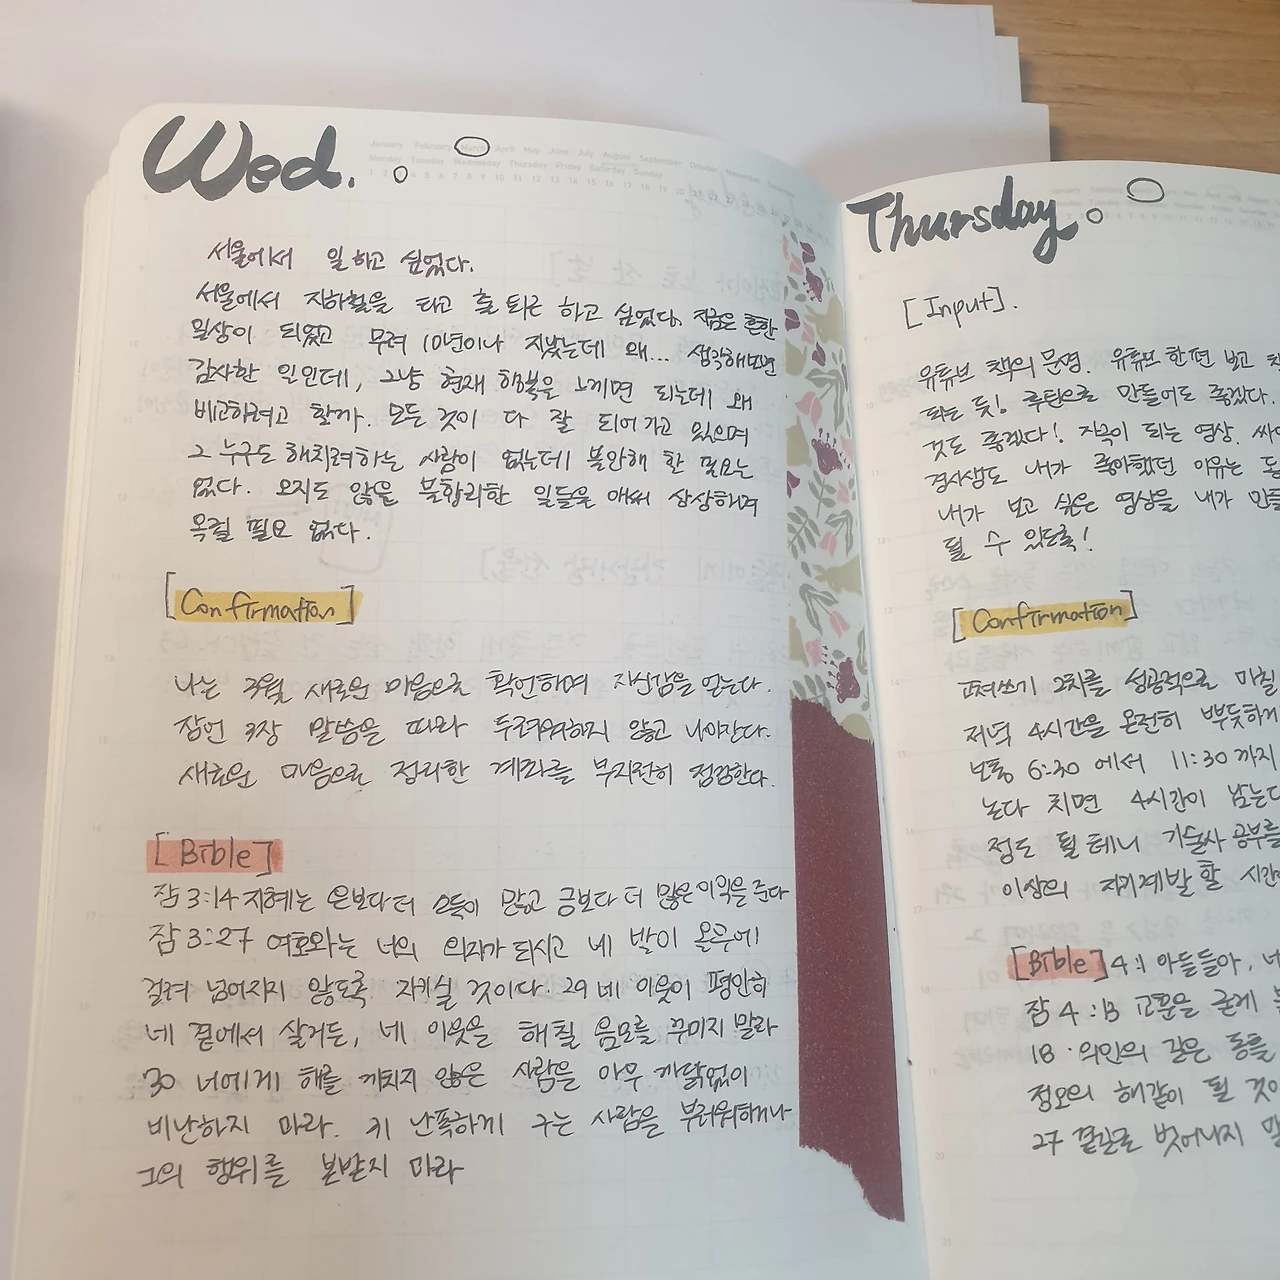 Wed.
January February March April May June July August September October November
Monday Tuesday Wednesday Thursday Friday Saturday Sunday
서울에서 일하고 싶었다.
서울에서 지하철을 타고 출퇴근 하고 싶었다. 지금은 흔한
일상이 되었고 무려 10년이나 지났는데 왜... 생각해보면
감사한 일인데, 그냥 현재 행복을 느끼면 되는데 왜
비교하려고 할까. 모든 것이 다 잘 되어가고 있으며
그 누구도 해치려하는 사람이 없는데 불안해 할 필요는
없다. 오지도 않을 불합리한 일들을 애써 상상하며
옥죌 필요 없다.
[Confirmation]
나는 3월 새로운 마음으로 확언하며 자신감을 얻는다.
잠언 3장 말씀을 따라 두려워하지 않고 나아간다.
새로운 마음으로 정리한 계좌를 부지런히 점검한다.
[Bible]
잠 3:14 지혜는 은보다 더 소득이 많고 금보다 더 많은 이익을 준다
잠 3:27 여호와는 너의 의지가 되시고 네 발이 올무에
걸려 넘어지지 않도록 지키실 것이다. 29 네 이웃이 평안히
네 곁에서 살거든, 네 이웃을 해칠 음모를 꾸미지 말라
30 너에게 해를 끼치지 않은 사람을 아무 까닭없이
비난하지 마라. 31 난폭하게 구는 사람을 부러워하거나
그의 행위를 본받지 마라
Thursday.
[Input].
유튜브 책의 문명. 유튜브 한편 보고
되는 듯! 루틴으로 만들어도 좋겠다.
것도 좋겠다! 자극이 되는 영상.
경사생도 내가 좋아했던 이유는
내가 보고 싶은 영상을 내가
될 수 있도록!
[Confirmation]
고쳐쓰기 2회를 성공적으로 마칠
저녁 4시간을 온전히 뿌듯하게
보통 6:30 에서 11:30 까지
논다 치면 4시간이 남는다
정도 될테니 기술사 공부를
이상의 자기계발 할 시간
[Bible] 4:1 아들들아,
잠 4:13 교훈을 굳게
18 의인의 길은 동틀
정오의 해같이 될
27 곁길로 벗어나지